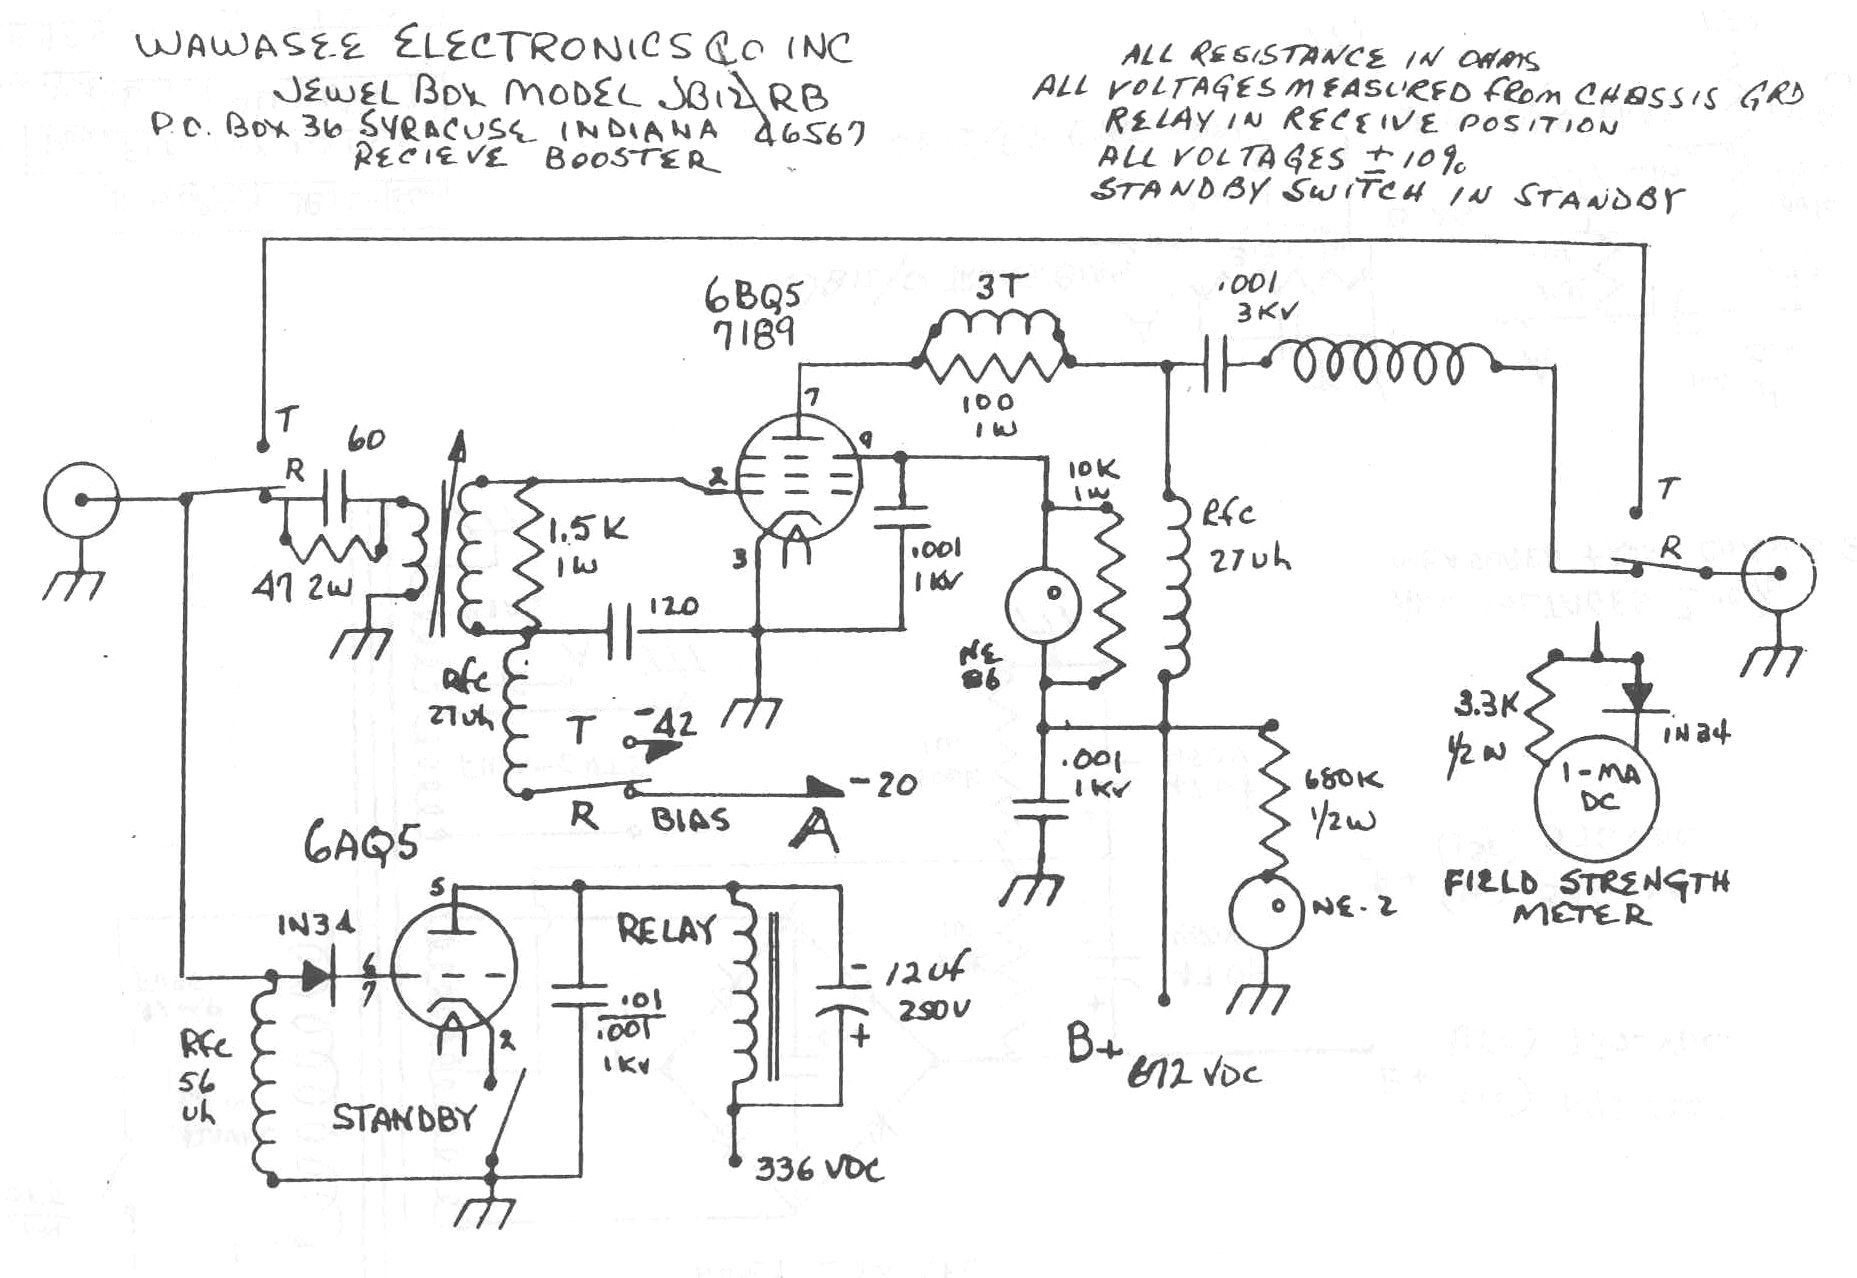 WAWASEE ELECTRONICS CO INC
JEWEL BOX MODEL JB12/RB
P.O. BOX 36 SYRACUSE INDIANA 46567
RECIEVE BOOSTER
ALL RESISTANCE IN OHMS
ALL VOLTAGES MEASURED FROM CHASSIS GRD
RELAY IN RECEIVE POSITION
ALL VOLTAGES ± 10%
STANDBY SWITCH IN STANDBY
6BQ5
7189
3T
.001
3KV
T
R
60
47 2W
1.5K
1W
2
7
9
3
100
1W
.001
1KV
10K
1W
NE
86
Rfc
27uh
T
R
120
Rfc
27uh
T
-42
R
BIAS
A
-20
.001
1KV
680K
1/2W
NE-2
3.3K
1/2W
1N34
1-MA
DC
FIELD STRENGTH
METER
6AQ5
5
1N34
6
7
2
Rfc
56
uh
STANDBY
RELAY
.01
.001
1KV
-
12uf
250V
+
336 VDC
B+
672 VDC